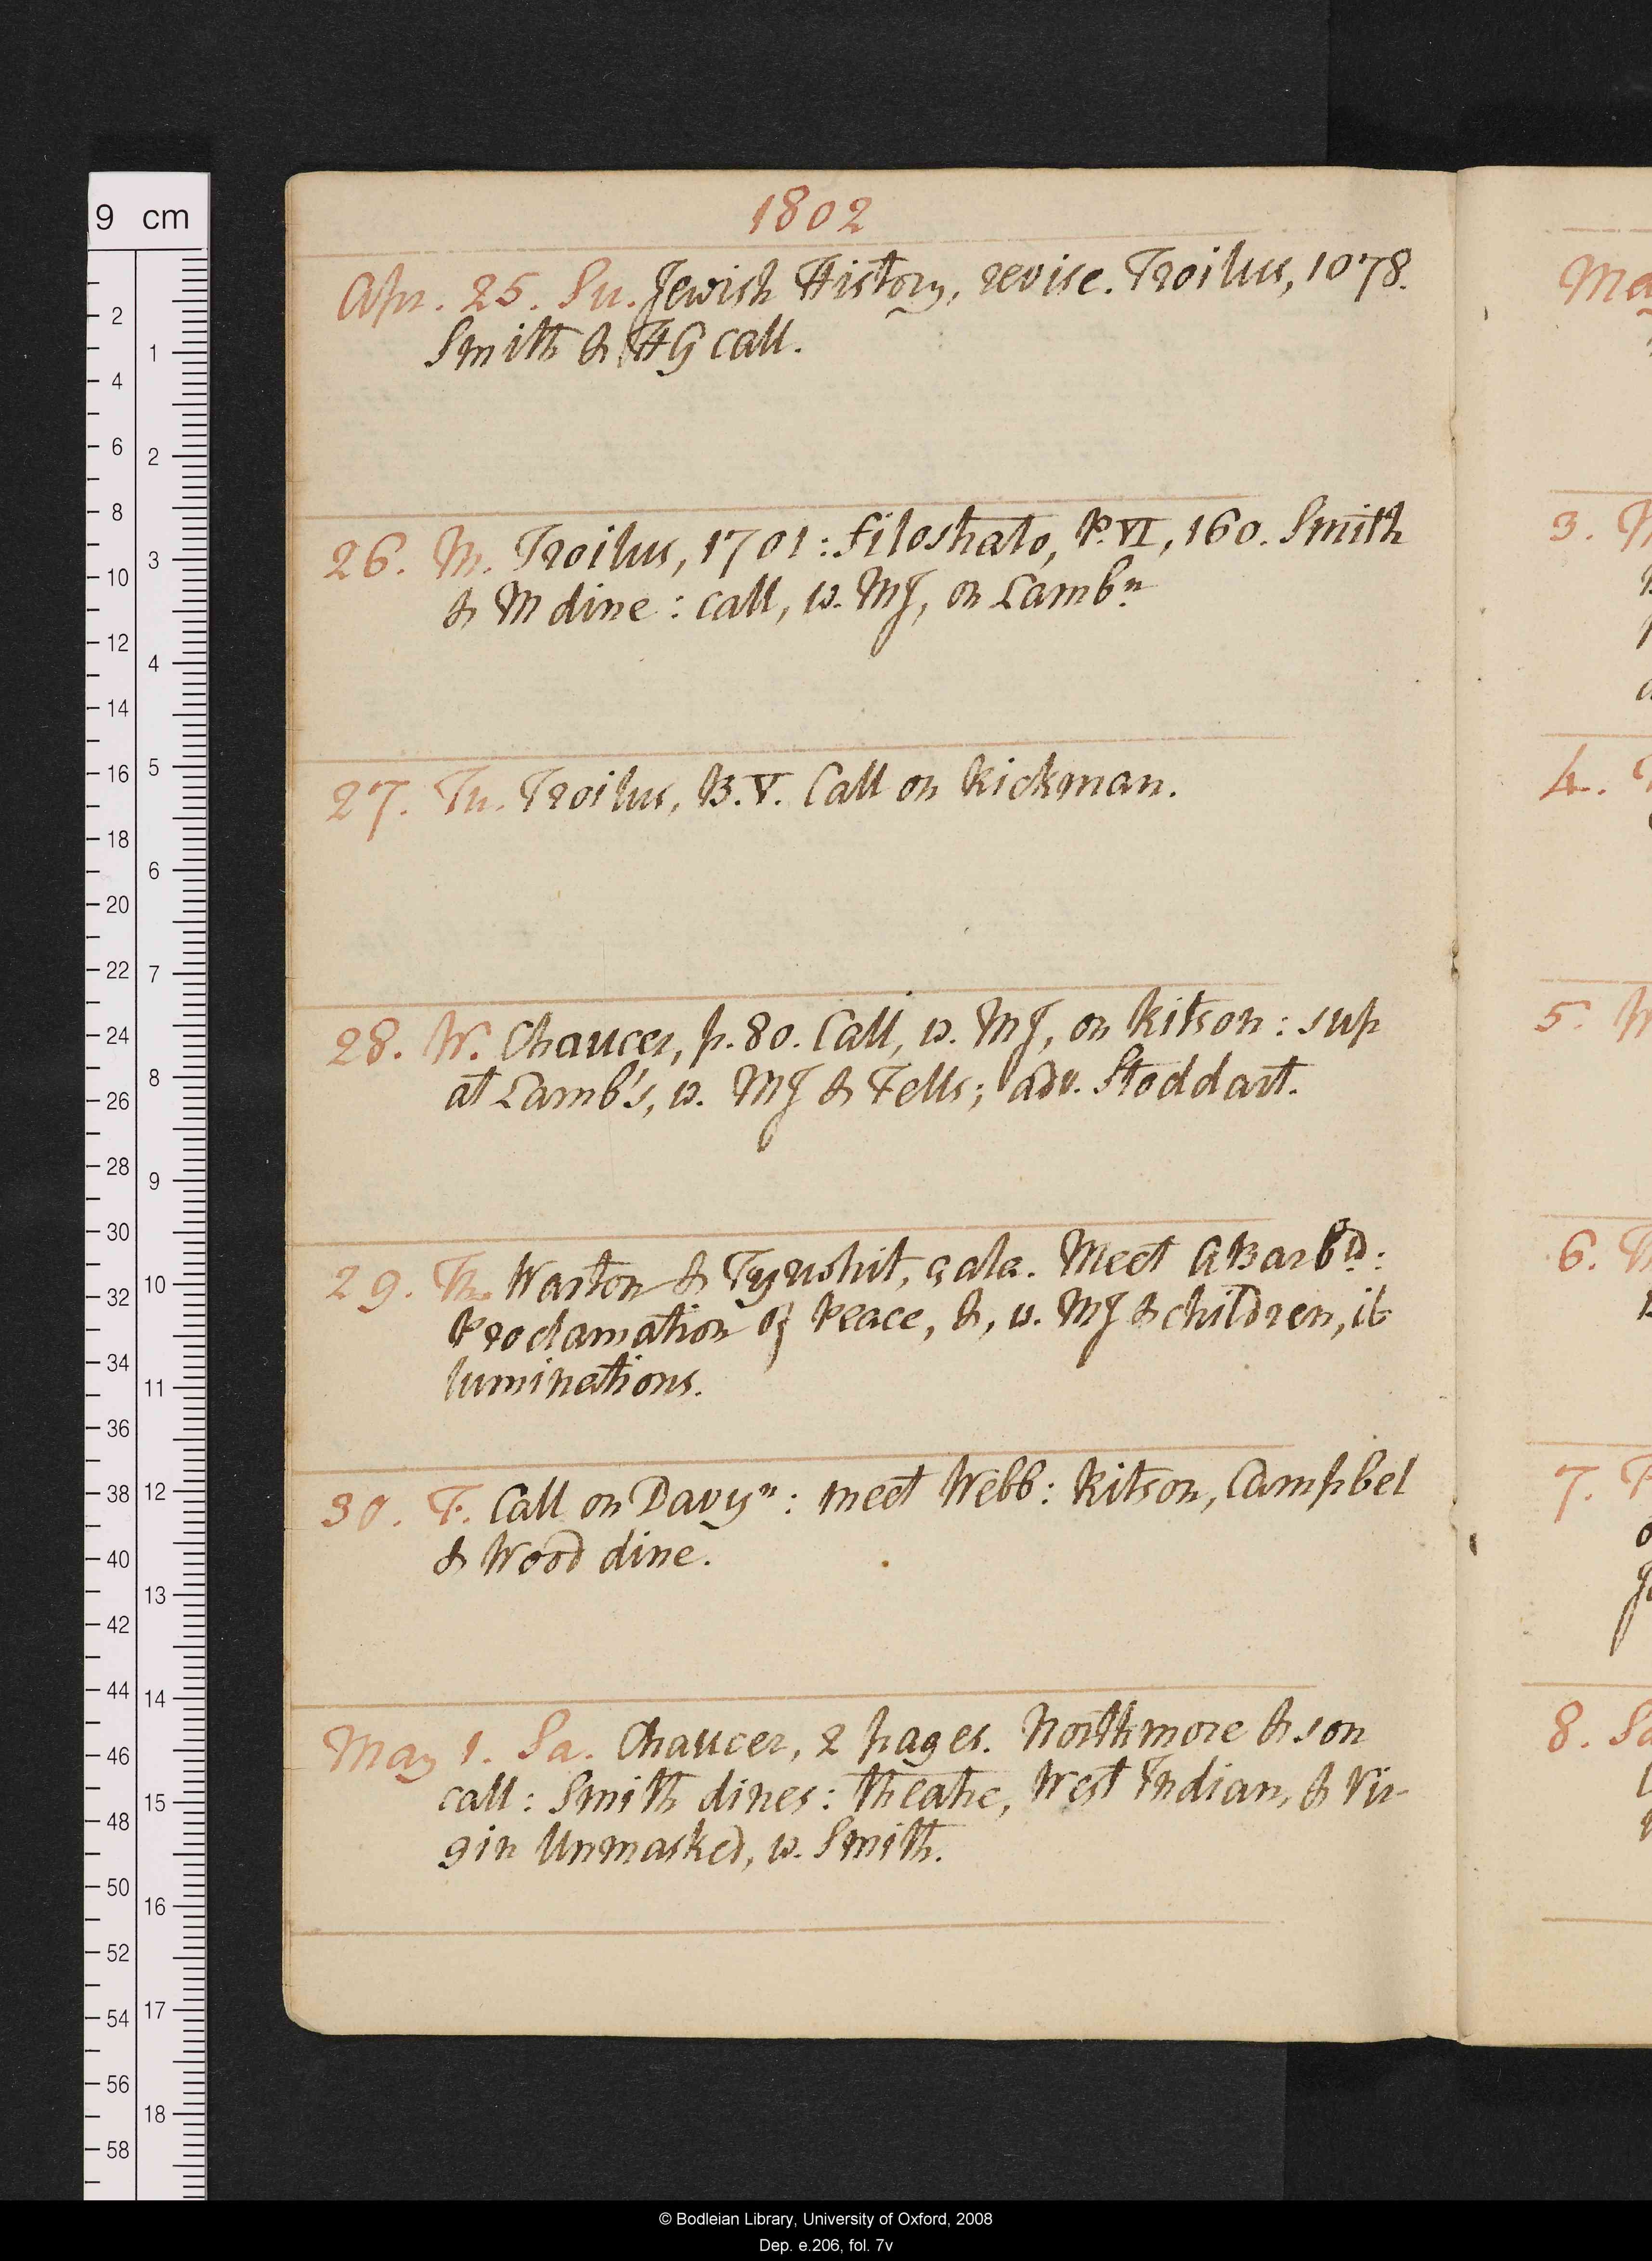 1802
Apr. 25. Su. Jewish History, revise. Troilus, 1078.
Smith & HG call.
26. M. Troilus, 1701: Filostrato, P. VI, 160. Smith
& M dine: call, w. MJ, on Lambⁿ
27. Tu. Troilus, B. V. Call on Rickman.
28. W. Chaucer, p. 80. Call, w. MJ, on Ritson: sup
at Lamb's, w. MJ & Fells; adv. Stoddart.
29. Th. Warton & Tyrwhit, çala. Meet ABarbᵈ:
Proclamation of Peace, &, w. MJ & children, il-
luminations.
30. F. Call on Davyⁿ: meet Webb: Ritson, Campbel
& Wood dine.
May 1. Sa. Chaucer, 2 pages. Northmore & son
call: Smith dines: theatre, West Indian, & Vir-
gin Unmasked, w. Smith.
3.
4.
5.
6.
7.
8. Sa
9 cm
2
4
6
8
10
12
14
16
18
20
22
24
26
28
30
32
34
36
38
40
42
44
46
48
50
52
54
56
58
1
2
3
4
5
6
7
8
9
10
11
12
13
14
15
16
17
18
© Bodleian Library, University of Oxford, 2008
Dep. e.206, fol. 7v